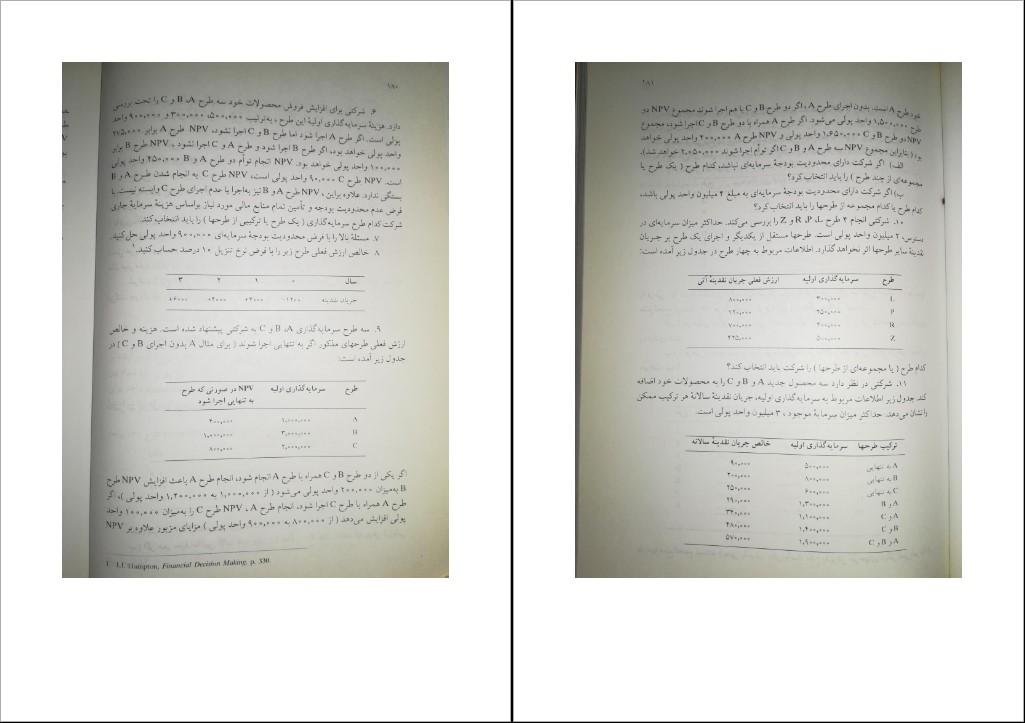 ۱۸۰
۶. شرکتی برای افزایش فروش محصولات خود سه طرح A، B و C را تحت بررسی
دارد. هزینهٔ سرمایه‌گذاری اولیهٔ این طرح، به‌ترتیب ۵۰۰,۰۰۰، ۳۰۰,۰۰۰ و ۹۰۰,۰۰۰ واحد
پولی است. اگر طرح A اجرا شود اما طرح B و C اجرا نشود، NPV طرح A برابر ۲۷۵,۰۰۰
واحد پولی خواهد بود، اگر طرح B اجرا شود و طرح A و C اجرا نشود NPV طرح B برابر
۱۰۰,۰۰۰ واحد پولی خواهد بود. NPV انجام توأم دو طرح A و B ۴۵۰,۰۰۰ واحد پولی
است. NPV طرح C ۹۰,۰۰۰ واحد پولی است، NPV طرح C به انجام شدن طرح A و B
بستگی ندارد. علاوه براین، NPV طرح A و B نیز به‌اجرا یا عدم اجرای طرح C وابسته نیست. با
فرض عدم محدودیت بودجه و تأمین تمام منابع مالی مورد نیاز براساس هزینهٔ سرمایهٔ جاری
شرکت کدام طرح سرمایه‌گذاری ( یک طرح یا ترکیبی از طرحها ) را باید انتخاب کند.
۷. مسئلهٔ بالا را با فرض محدودیت بودجهٔ سرمایه‌ای ۹۰۰,۰۰۰ واحد پولی حل کنید.
۸. خالص ارزش فعلی طرح زیر را با فرض نرخ تنزیل ۱۰ درصد حساب کنید.۱
سال ۰ ۱ ۲ ۳
جریان نقدینه
۹. سه طرح سرمایه‌گذاری A، B و C به شرکتی پیشنهاد شده است. هزینه و خالص
ارزش فعلی طرحهای مذکور اگر به تنهایی اجرا شوند ( برای مثال A بدون اجرای B و C ) در
جدول زیر آمده است:
طرح سرمایه‌گذاری اولیه NPV در صورتی که طرح
به تنهایی اجرا شود
A ۱,۰۰۰,۰۰۰ ۴۰۰,۰۰۰
B ۳,۰۰۰,۰۰۰ ۱,۰۰۰,۰۰۰
C ۲,۰۰۰,۰۰۰ ۸۰۰,۰۰۰
اگر یکی از دو طرح B و C همراه با طرح A انجام شود، انجام طرح A باعث افزایش NPV طرح
B به‌میزان ۲۰۰,۰۰۰ واحد پولی می‌شود ( از ۱,۰۰۰,۰۰۰ به ۱,۲۰۰,۰۰۰ واحد پولی )، اگر
طرح A همراه با طرح C اجرا شود، انجام طرح A، NPV طرح C را به‌میزان ۱۰۰,۰۰۰ واحد
پولی افزایش می‌دهد ( از ۸۰۰,۰۰۰ به ۹۰۰,۰۰۰ واحد پولی ) مزایای مزبور علاوه بر NPV
1. J.J. Hampton, Financial Decision Making, p. 330.
۱۸۱
خود طرح A است. بدون اجرای طرح A، اگر دو طرح B و C با هم اجرا شوند مجموع NPV دو
طرح ۱,۵۰۰,۰۰۰ واحد پولی می‌شود. اگر طرح A همراه با دو طرح B و C اجرا شود، مجموع
NPV دو طرح B و C ۱,۶۵۰,۰۰۰ واحد پولی و NPV طرح A ۴۰۰,۰۰۰ واحد پولی خواهد
بود ( بنابراین مجموع NPV سه طرح A و B و C اگر توأم اجرا شوند ۲,۰۵۰,۰۰۰ خواهد شد).
الف) اگر شرکت دارای محدودیت بودجهٔ سرمایه‌ای نباشد، کدام طرح ( یک طرح یا
مجموعه‌ای از چند طرح ) را باید انتخاب کرد؟
ب) اگر شرکت دارای محدودیت بودجهٔ سرمایه‌ای به مبلغ ۴ میلیون واحد پولی باشد،
کدام طرح یا کدام مجموعه از طرحها را باید انتخاب کرد؟
۱۰. شرکتی انجام ۴ طرح L، P، R و Z را بررسی می‌کند. حداکثر میزان سرمایه‌ای در
دسترس، ۲ میلیون واحد پولی است. طرحها مستقل از یکدیگر و اجرای یک طرح بر جریان
نقدینهٔ سایر طرحها اثر نخواهد گذارد. اطلاعات مربوط به چهار طرح در جدول زیر آمده است:
طرح سرمایه‌گذاری اولیه ارزش فعلی جریان نقدینهٔ آتی
L
P
R
Z
کدام طرح ( یا مجموعه‌ای از طرحها ) را شرکت باید انتخاب کند؟
۱۱. شرکتی در نظر دارد سه محصول جدید A و B و C را به محصولات خود اضافه
کند. جدول زیر اطلاعات مربوط به سرمایه‌گذاری اولیه، جریان نقدینهٔ سالانهٔ هر ترکیب ممکن
را نشان می‌دهد. حداکثر میزان سرمایهٔ موجود، ۳ میلیون واحد پولی است.
ترکیب طرحها سرمایه‌گذاری اولیه خالص جریان نقدینهٔ سالانه
A به تنهایی ۵۰۰,۰۰۰ ۹۰,۰۰۰
B به تنهایی ۸۰۰,۰۰۰ ۲۰۰,۰۰۰
C به تنهایی ۶۰۰,۰۰۰ ۲۵۰,۰۰۰
A و B ۱,۳۰۰,۰۰۰ ۲۹۰,۰۰۰
A و C ۱,۱۰۰,۰۰۰ ۳۴۰,۰۰۰
B و C ۱,۴۰۰,۰۰۰ ۴۸۰,۰۰۰
A و B و C ۱,۹۰۰,۰۰۰ ۵۷۰,۰۰۰